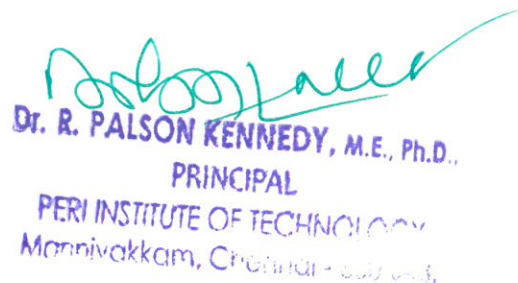 Dr. R. PALSON KENNEDY, M.E., Ph.D.,
PRINCIPAL
PERI INSTITUTE OF TECHNOLOGY
Mannivakkam, Chennai -